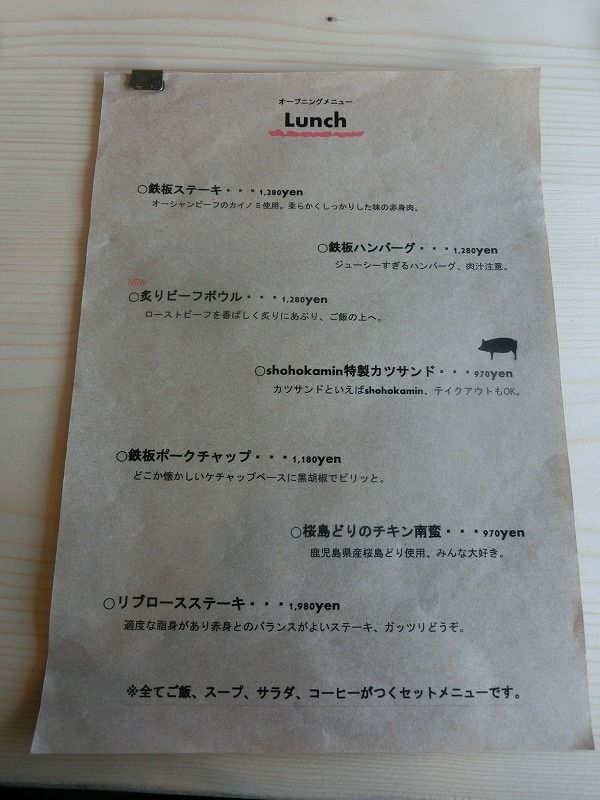 オープニングメニュー
Lunch
○鉄板ステーキ・・・1,280yen
オーシャンビーフのカイノミ使用。柔らかくしっかりした味の赤身肉。
○鉄板ハンバーグ・・・1,280yen
ジューシーすぎるハンバーグ、肉汁注意。
NEW
○炙りビーフボウル・・・1,280yen
ローストビーフを香ばしく炙りにあぶり、ご飯の上へ。
○shohokamin特製カツサンド・・・970yen
カツサンドといえばshohokamin、テイクアウトもOK。
○鉄板ポークチャップ・・・1,180yen
どこか懐かしいケチャップベースに黒胡椒でピリッと。
○桜島どりのチキン南蛮・・・970yen
鹿児島県産桜島どり使用、みんな大好き。
○リブロースステーキ・・・1,980yen
適度な脂身があり赤身とのバランスがよいステーキ、ガッツリどうぞ。
※全てご飯、スープ、サラダ、コーヒーがつくセットメニューです。